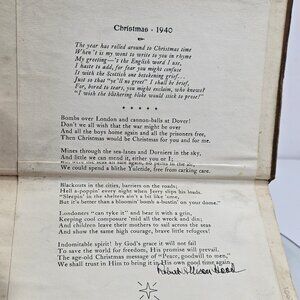 Christmas - 1940
The year has rolled around to Christmas time
When 't is my wont to write to you in rhyme
My greeting—'t is the English word I use,
I haste to add, for fear you might confuse
It with the Scottish one betokening grief...
Just so that "ye'll no greet" I shall be brief,
For, bored to tears, you might exclaim, who knows?
"I wish the blithering bloke would stick to prose!"
Bombs over London and cannon-balls at Dover!
Don't we all wish that the war might be over
And all the boys home again and all the prisoners free,
Then Christmas would be Christmas for you and for me.
Mines through the sea-lanes and Dorniers in the sky,
And little we can mend it, either you or I;
We could spend a blithe Yuletide, free from carking care.
Blackouts in the cities, barriers on the roads;
Hell a-poppin' every night when Jerry slips his loads.
"Sleepin' in the shelters ain't a bit like 'ome,
But it's better than a bloomin' bomb a-bustin' on your dome."
Londoners "can tyke it" and bear it with a grin,
Keeping cool composure 'mid all the wreck and din;
And children leave their mothers to sail across the seas
And show the same high courage, brave little refugees!
Indomitable spirit! by God's grace it will not fail
To save the world for freedom, His promise will prevail.
The age-old Christmas message of "Peace, goodwill to men,"
We shall trust in Him to bring it in His own good time again.